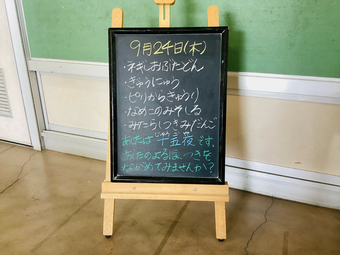 9月24日(木)
・ネギしおぶたどん
・ぎゅうにゅう
・ピリからきゅうり
・なめこのみそしる
・みたらしつきみだんご
じゅうごや
あしたは十五夜です。
あしたのよるは、つきを
ながめてみませんか?